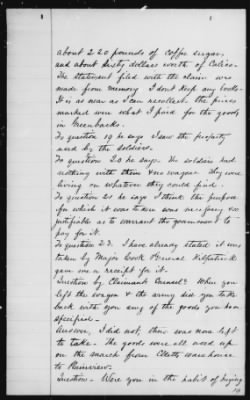 about 220 pounds of coffee sugar.
and about sixty dollars worth of Calico.
The statement filed with the claim was
made from memory I dont keep any books.
It is as near as I can recollect. the prices
marked were what I paid for the goods
in Greenbacks.
To question 19 he says I saw the property
used by the soldiers.
To question 20 he says. The soldiers had
nothing with them & no wagons they were
living on whatever they could find.
To question 21 he says I think the purpose
for which it was taken was necessary &
justifiable as to warrant the government to
pay for it.
To question 23. I have already stated it was
taken by Major Cook & General Kilpatrick
gave me a receipt for it.
Question by Claimants Counsel? When you
left the wagon & the army did you take
back with you any of the goods you have
specified.
Answer, I did not, there was none left
to take. The goods were all used up
on the march from warehouse
to
Question - Were you in the habit of buying